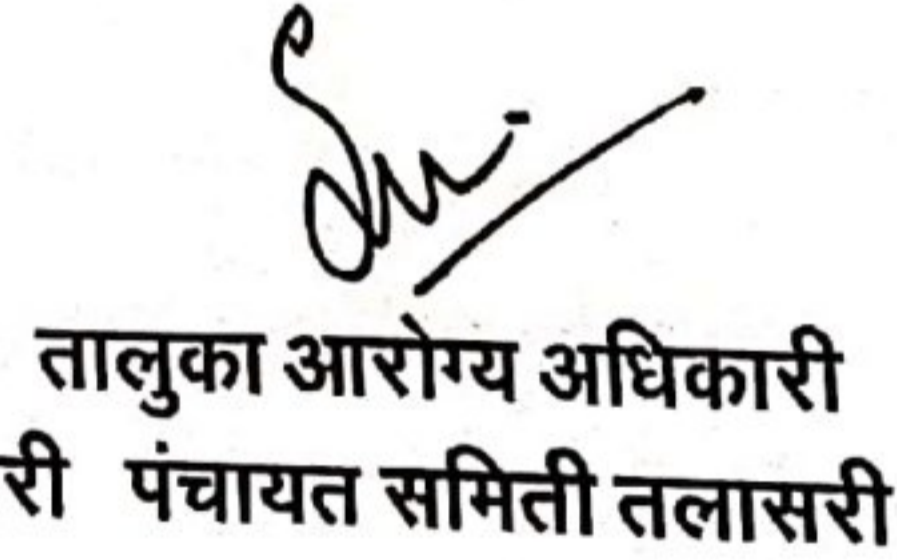 तालुका आरोग्य अधिकारी
री पंचायत समिती तलासरी